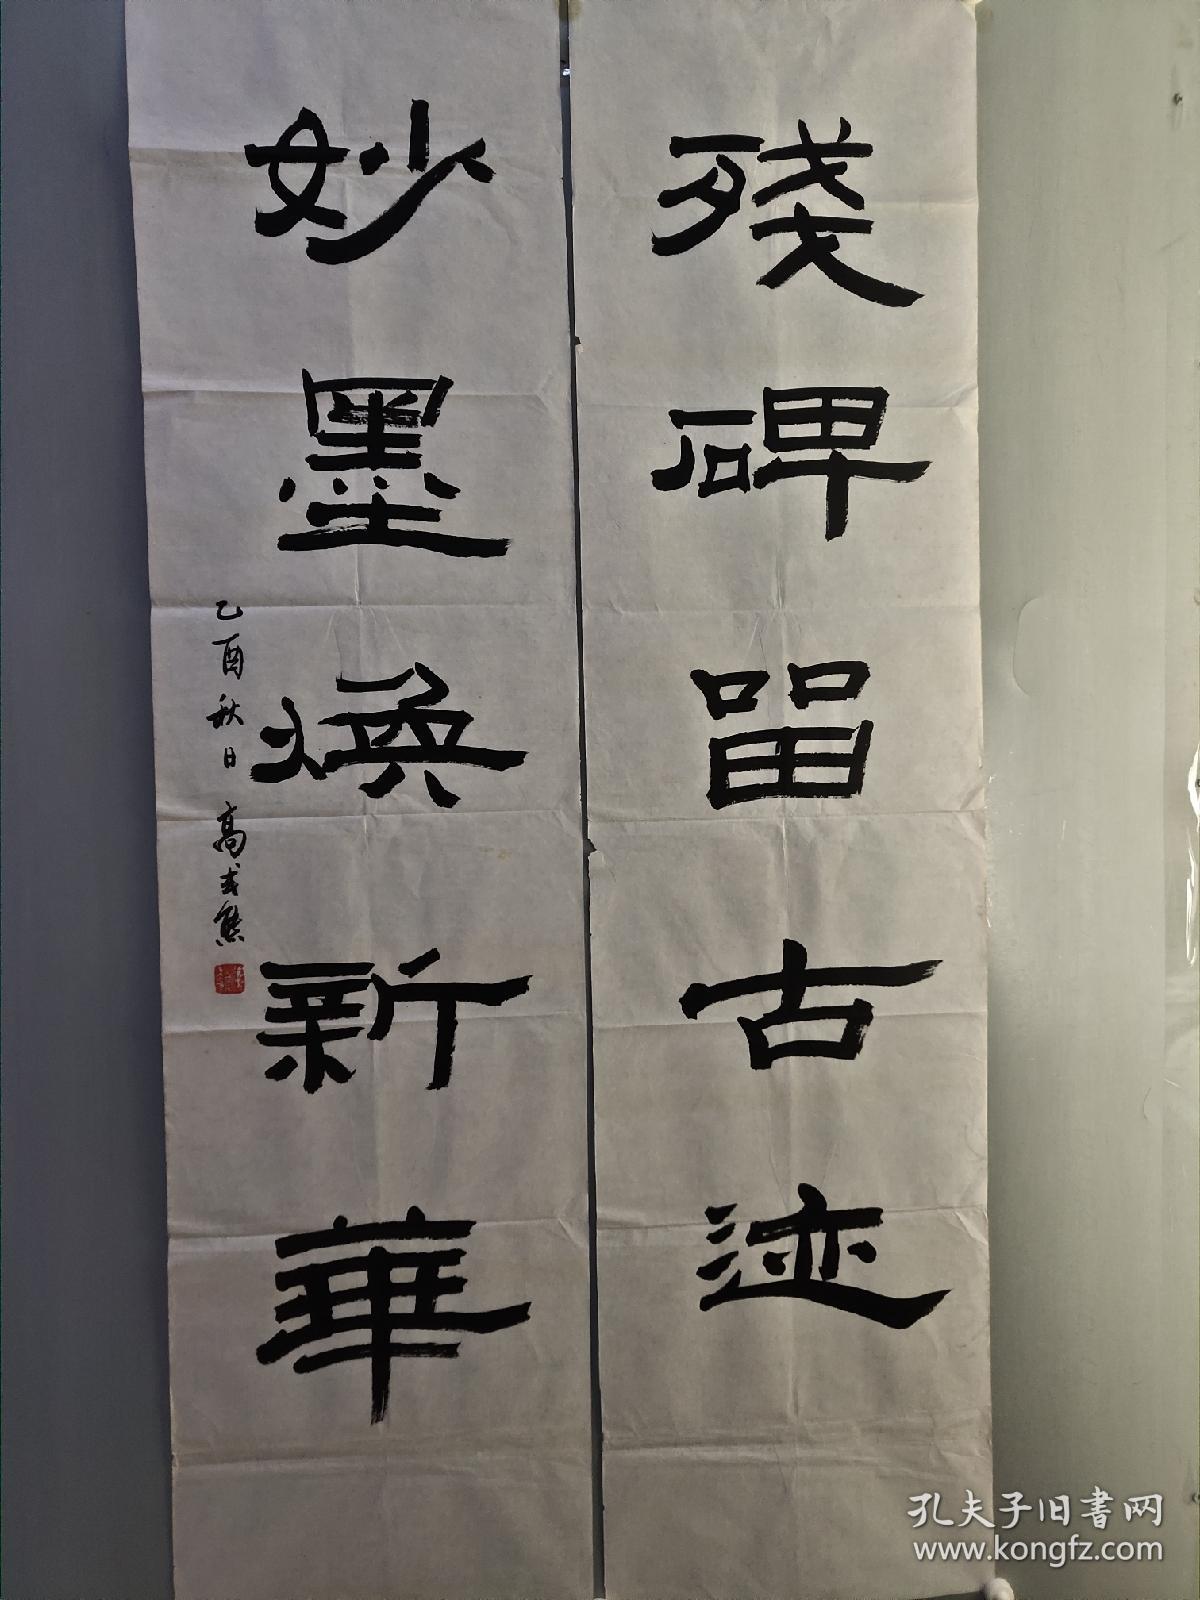 殘碑留古迹
妙墨煥新華
乙酉秋日 高式熊
孔夫子旧書网
www.kongfz.com